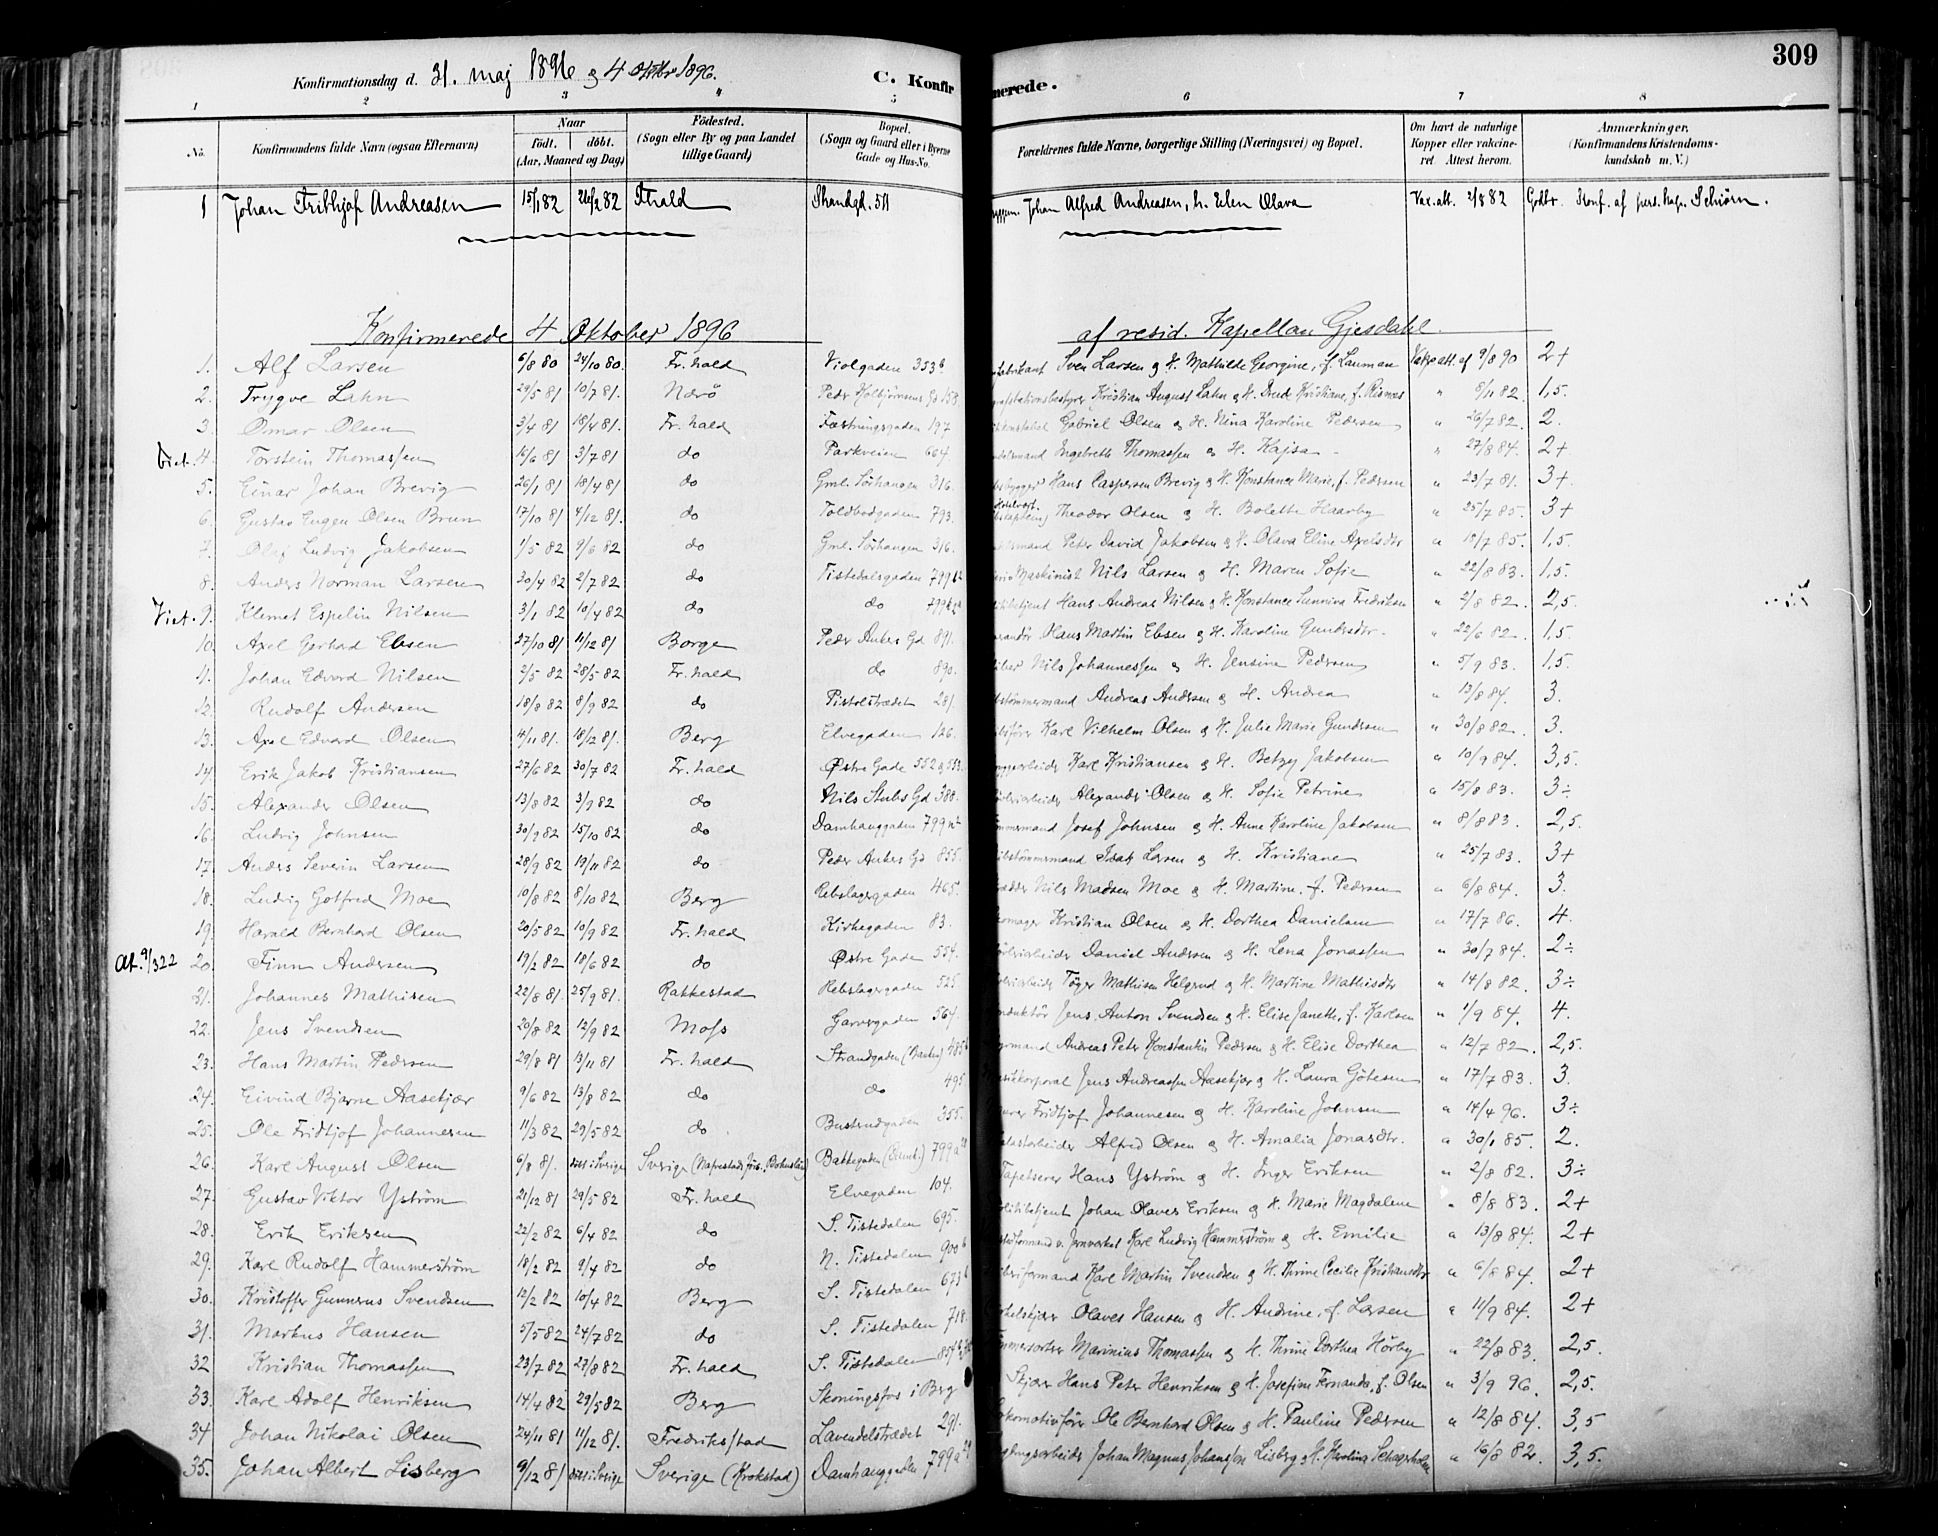 309
Konfirmationsdag d. 31. maj 1896 og 4 Oktbr 1896. C. Konfirmerede.
1 2 3 4 5 6 7 8
No. Konfirmandens fulde Navn (ogsaa Efternavn) Naar født. døbt. (Aar, Maaned og Dag) Fødested. (Sogn eller By og paa Landet tillige Gaard) Bopæl. (Sogn og Gaard eller i Byerne Gade og Hus-No. Forældrenes fulde Navne, borgerlige Stilling (Næringsvei) og Bopæl. Om havt de naturlige Kopper eller vakcineret. Attest herom. Anmærkninger. (Konfirmandens Kristendomskundskab m. V.)
1 Johan Frithjof Andreasen 15/1 82 26/2 82 Fhald Strandgd. 511 Johan Alfred Andreasen, h. Elen Olava Vax.att. 2/8 82 Godtr. Konf. af pers. kap. Schiørn.
Konfirmerede 4 Oktober 1896 af resid. Kapellan Gjesdahl.
1. Alf Larsen 6/8 80 24/10 80. Fr.hald Violgaden 353b Sven Larsen og H. Mathilde Georgine, f. Lauman Vakc.att. af 9/8 90 2+
2. Trygve Lahn 29/5 81 10/7 81. Nærø Peder Kolbjørnsens Gd 158. Kristian August Lahn og H. Drude Kristiane, f. Risnæs " 8/11 82. 1,5.
3. Omar Olsen 3/4 81 18/4 81. Fr.hald Fæstningsgaden 197 Gabriel Olsen og H. Nina Karoline Pedersen " 26/7 82. 2.
4. Torstein Thomassen 16/6 81 3/7 81 do Parkveien 664. Ingebreth Thomassen og H. Kajsa " 27/8 84. 2+
5. Einar Johan Brevig 26/1 81 18/4 81 do Gml. Sørhaugen 316. Hans Caspersen Brevig og H. Konstance Marie, f. Pedersen " 23/7 81. 3+
6. Gustav Eugen Olsen Brun 17/10 81 4/12 81. do Toldbodgaden 793. Theodor Olsen og H. Bolette Haarby " 25/7 85. 3+
7. Olaf Ludvig Jakobsen 1/5 82 9/6 82 do Gml. Sørhaugen 316. Peter David Jakobsen og H. Olava Eline Axelsdtr " 18/7 85. 1,5.
8. Anders Norman Larsen 30/4 82 2/7 82 do Tistedalsgaden 799 Maskinist Nils Larsen og H. Maren Sofie " 22/8 83. 1,5.
9. Klemet Espelin Nilsen 3/1 82 10/4 82 do do 799 Hans Andreas Nilsen og H. Konstance Sunniva Fredriksen " 2/8 82. 2,5.
10. Axel Gerhard Ebsen 27/10 81 11/12 81 Borge Peder Ankers Gd 891. Olaus Martin Ebsen og H. Karoline Gundersdtr. " 22/6 82. 1,5.
11. Johan Edvard Nilsen 2/5 82 28/5 82 Fr.hald do 890. Nils Johannessen og H. Jensine Pedersen " 5/9 83. 1,5.
12. Rudolf Andersen 18/8 82 8/9 82 do Pistolstrædet 281. Andreas Andersen og H. Andrea " 13/8 84. 3.
13. Axel Edvard Olsen 4/11 81. 18/12 81. Berg Elvegaden 126. Karl Vilhelm Olsen og H. Julie Marie Gundersen " 30/8 82. 3.
14. Erik Jakob Kristiansen 27/6 82 30/7 82 Fr.hald Østre Gade 552 og 553. Karl Kristiansen og H. Betzy Jakobsen " 10/9 84. 3,5.
15. Alexander Olsen 13/8 82 3/9 82 do Nils Stubs Gd 388. Alexander Olsen og H. Sofie Petrine " 15/8 83. 3÷
16. Ludvig Johnsen 30/9 82 15/10 82 do Damhauggaden 799 Josef Johnsen og H. Anne Karoline Jakobsen " 8/8 83. 2,5.
17. Anders Severin Larsen 28/9 82 19/11 82 do Peder Ankers Gd 855. Isak Larsen og H. Kristiane " 25/7 83. 3+
18. Ludvig Gotfred Moe 10/8 82 8/10 82 Berg Rebslagergaden 465. Nils Madsen Moe og H. Martine, f. Pedersen " 6/8 84. 3.
19. Harald Bernhard Olsen 20/5 82 10/9 82 Fr.hald Kirkegaden 83. Kristian Olsen og H. Dorthea Danielsen " 17/7 86. 4.
At. 9/3 22 20. Finn Andersen 19/2 82 18/6 82 do Østre Gade 554. Daniel Andersen og H. Lena Jonassen " 30/7 84. 2÷
21. Johannes Mathisen 22/8 81. 25/9 81. Rakkestad Rebslagergaden 525. Tøger Mathisen Helgrud og H. Martine Mathisdtr " 14/8 82. 3÷
22. Jens Svendsen 20/8 82 12/9 82 Moss Garvergaden 564. Jens Anton Svendsen og H. Elise Janette, f. Karlsen " 1/9 84. 4.
23. Hans Martin Pedersen 29/8 81 13/11 81 Fr.hald Strandgaden (Banken) 485 Andreas Peter Konstantin Pedersen og H. Elise Dorthea " 12/7 82. 2,5.
24. Eivind Bjarne Aasekjær 9/6 82 13/8 82 do do 495. Jens Andreassen Aasekjær og H. Laura Gøtesen " 17/7 83. 3.
25. Ole Fridtjof Johannesen 11/3 82 29/5 82 do Bustrudgaden 355. Fridtjof Johannesen og H. Karoline Johnsen " 14/4 96. 3÷
26. Karl August Olsen 6/8 81. døbt i Sverige Sverige Bakkegaden 799a Alfred Olsen og H. Amalia Jonasdtr. " 30/1 85. 2.
27. Gustav Viktor Yström 21/12 81 29/5 82 Fr.hald Elvegaden 104. Tapetserer Hans Yström og H. Inger Eriksen " 2/8 82. 3÷
28. Erik Eriksen 22/2 82 6/4 82 do S. Tistedalen 695. Johan Olaves Eriksen og H. Marie Magdalene " 8/8 83. 2+
29. Karl Rudolf Hammerström 18/2 82 9/4 82 do N. Tistedalen 900b Karl Ludvig Hammerström og H. Emilie " 13/8 84. 2+
30. Kristoffer Gunnerus Svendsen 12/2 82 10/4 82 Berg S. Tistedalen 673b Karl Martin Svendsen og H. Thrine Cecilie Kristiansdtr " 6/8 84. 2+
31. Markus Hansen 5/5 82 24/7 82 do S. Tistedalen 718. Olaves Hansen og H. Andrine, f. Larsen " 11/9 84. 2+
32 Kristian Thomassen 23/7 82 27/8 82 Fr.hald S. Tistedalen 854 Marinius Thomassen og H. Thrine Dorthea Hörby " 22/8 83. 2,5.
33. Karl Adolf Henriksen 14/4 82 29/5 82 Berg Skoningsfos i Berg Skjærer Hans Peter Henriksen og H. Josefine Fernanda, f. Olsen " 3/9 96. 2,5.
34 Johan Nikolai Olsen 24/11 81 11/12 81. Fredriksstad Lavendelstrædet 291. Lokomotivfører Ole Bernhard Olsen og H. Pauline Pedersen " 12/8 84. 3,5
35. Johan Albert Lisberg 9/12 81 døbt i Sverige Sverige (Krokstad) Damhauggaden 799a Johan Magnus Johansson Lisberg og H. Karolina " 16/8 82. 3,5.